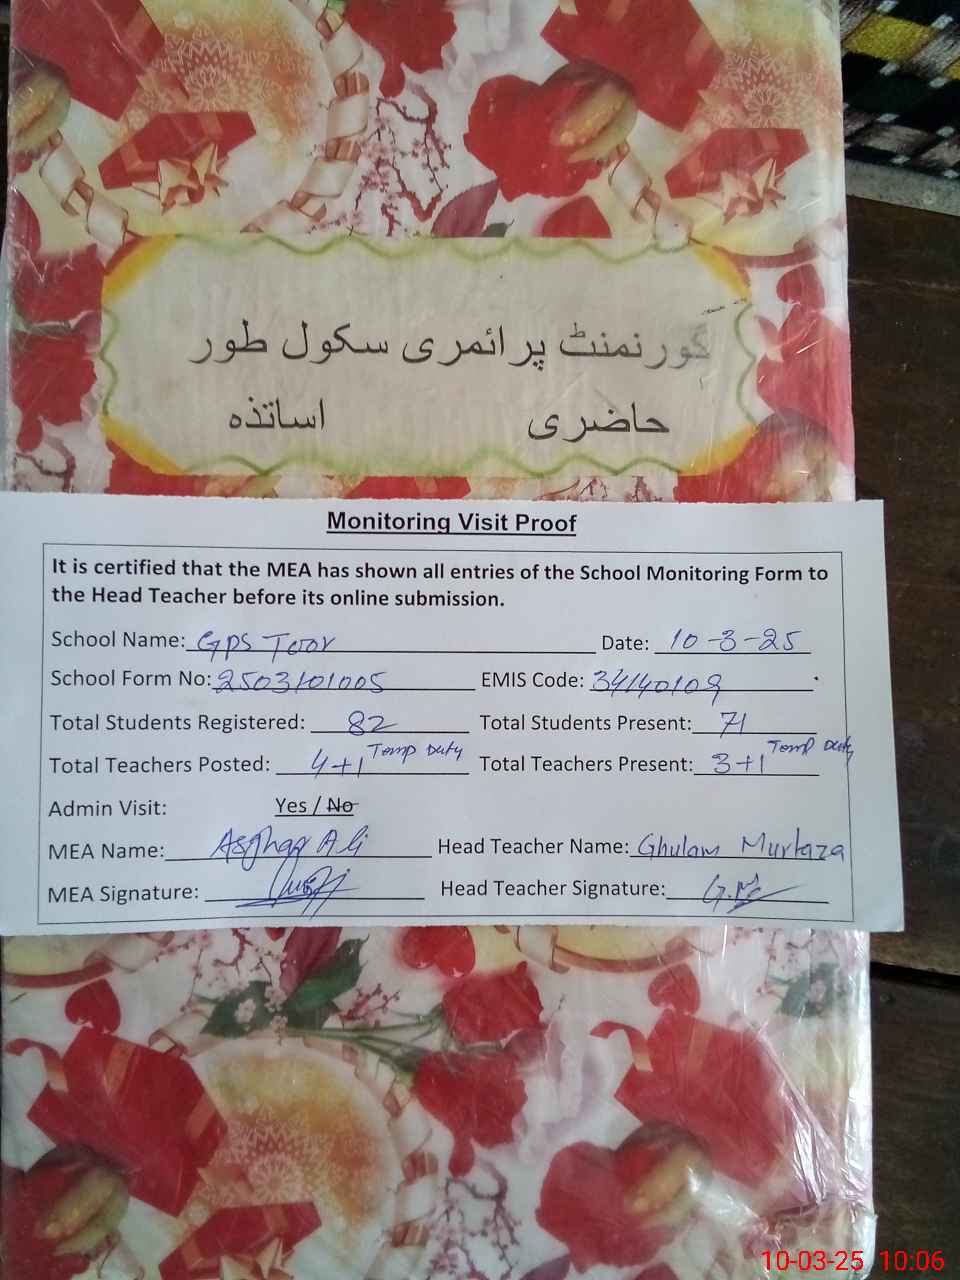 گورنمنٹ پرائمری سکول طور
حاضری اساتذہ
Monitoring Visit Proof
It is certified that the MEA has shown all entries of the School Monitoring Form to
the Head Teacher before its online submission.
School Name: GPS Toor Date: 10-3-25
School Form No: 2503101005 EMIS Code: 34140109
Total Students Registered: 82 Total Students Present: 71
Total Teachers Posted: 4+1 Temp Duty Total Teachers Present: 3+1 Temp Duty
Admin Visit: Yes / No
MEA Name: Asghar Ali Head Teacher Name: Ghulam Murtaza
MEA Signature: Head Teacher Signature: G.M
10-03-25 10:06